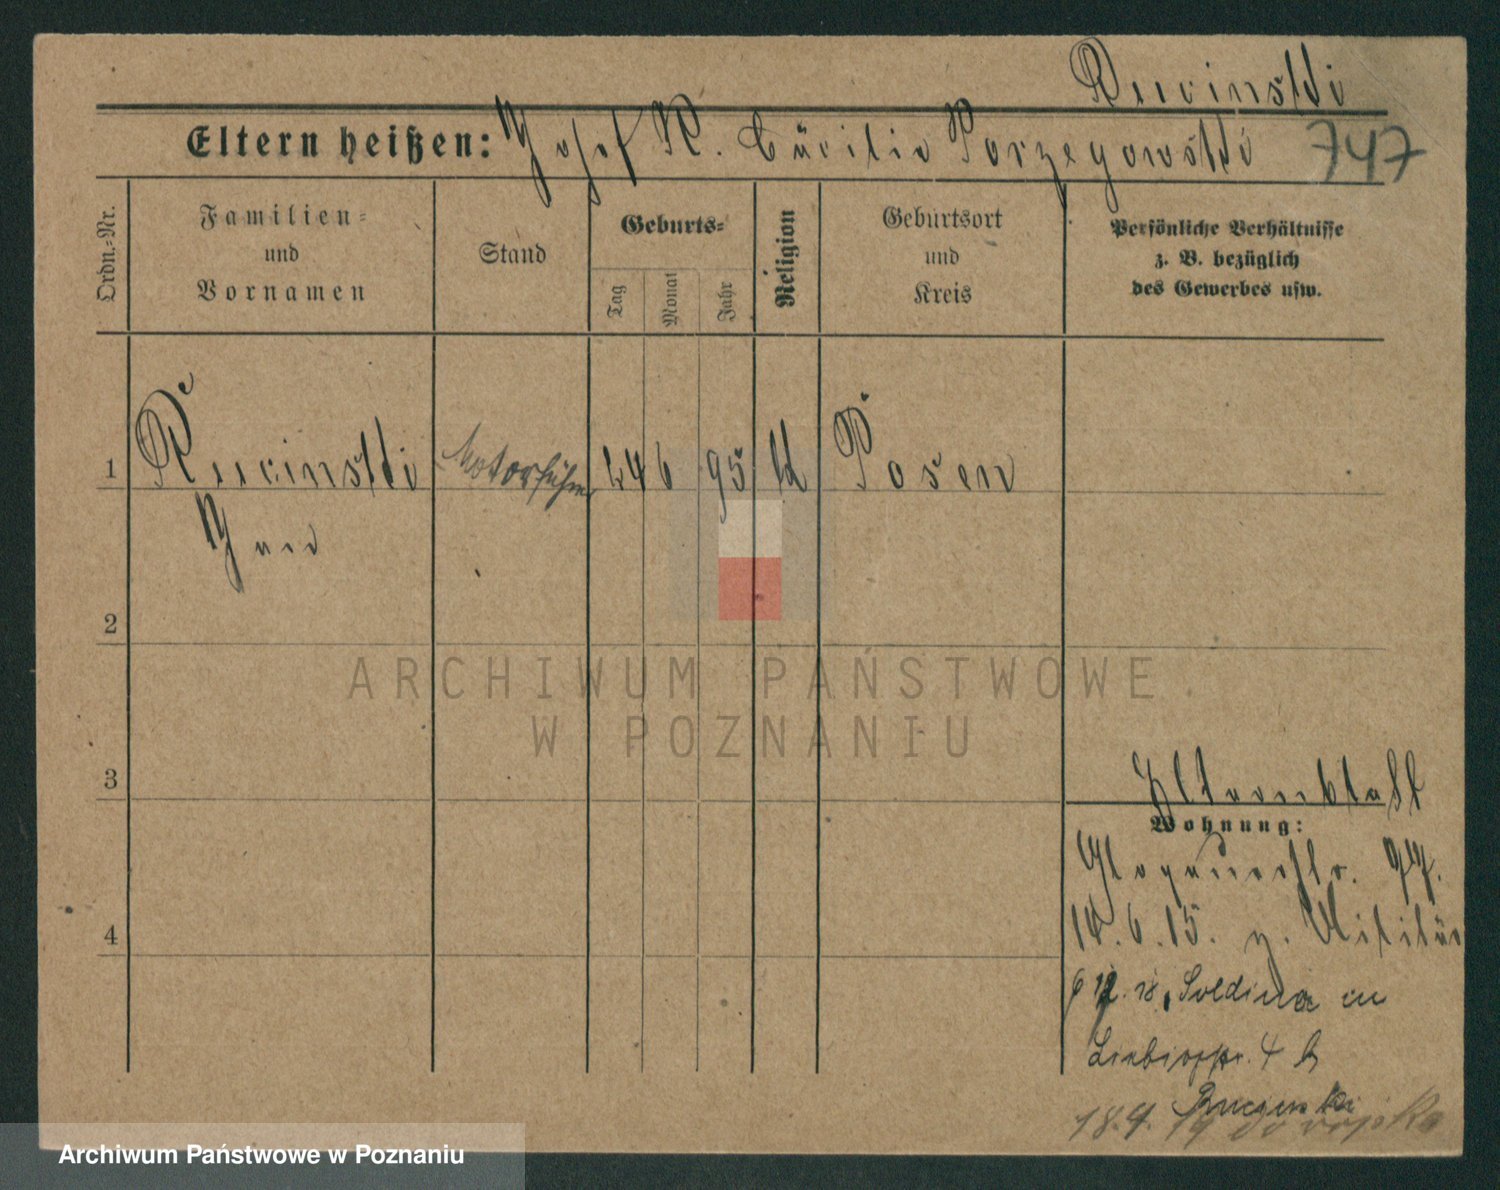 Rucinski
Eltern heißen: Josef R. Cäcilie Porzegowski 747
Ordn.-Nr.
Familien-
und
Vornamen
Stand
Geburts-
Tag
Monat
Jahr
Religion
Geburtsort
und
Kreis
Persönliche Verhältnisse
z. B. bezüglich
des Gewerbes usw.
1 Rucinski Motorführer 24 6 95 k Posen
2
3
4
Wohnung:
Glogauerstr.
14.6.15. z. Militär
18.
4
18.9.19 do wojska
ARCHIWUM PAŃSTWOWE
W POZNANIU
Archiwum Państwowe w Poznaniu